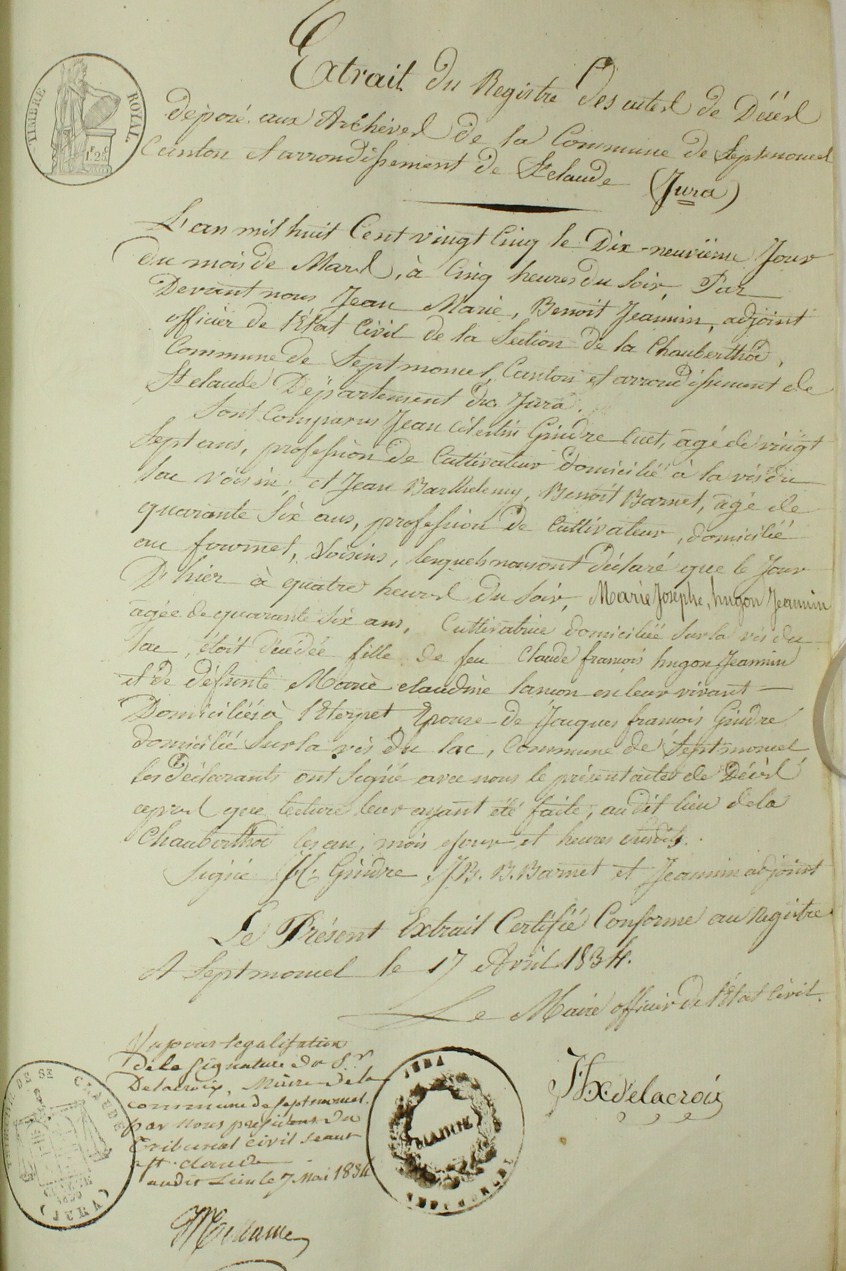 TIMBRE ROYAL
Extrait du Registre Des actes de Décès
déposé aux Archives de la Commune de Septmoncel
Canton et arrondissement de St claude (Jura)
L'an mil huit Cent vingt Cinq le Dix-neuvième Jour
du mois de Mars, à Cinq heures du Soir, Par
Devant nous Jean Marie, Benoit Jeannin, adjoint
officier de l'Etat Civil de la Section de la Chauberthod,
Commune de Septmoncel, Canton et arrondissement de
St claude Département du Jura.
Sont Comparus Jean Celestin Gindre Cuet, agé de vingt
Sept ans, profession de Cultivateur domicilié à la vis du
lac voisin; et Jean Barthelemy, Benoit Barnet, agé de
quarante Six ans, profession de Cultivateur, domicilié
au fournet, Voisins, lesquels nous ont déclaré que le Jour
D'hier à quatre heures du Soir, Marie Josephe, hugon Jeannin
agée de quarante Six ans, Cultivatrice domiciliée Sur la vis du
lac, étoit décédée fille de feu Claude françois hugon Jeannin
et de défunte Marie claudine lançon en leur vivant
Domiciliés à Epouse de Jacques françois Gindre
domicilié Sur la vis du lac, Commune de Septmoncel
les déclarants ont Signé avec nous le présent actes de Décès
après que lecture leur ayant été faite, au dit lieu de la
Chauberthod les an, mois jour et heures susdits.
Signée JC. Gindre, JB. B. Barnet et Jeannin adjoint
Le Présent Extrait Certifié Conforme au Registre
A Septmoncel le 17 Avril 1834.
Le Maire officier de l'Etat Civil.
Vu pour légalisation
de la Signature du Sr
Delacroix, Maire de la
commune de septmoncel.
par nous président du
Tribunal civil séant
à St. claude
audit Lieu le 7 Mai 1834
DE St CLAUDE
(JURA)
JURA
MAIRIE
SEPTMONCEL
Delacroix